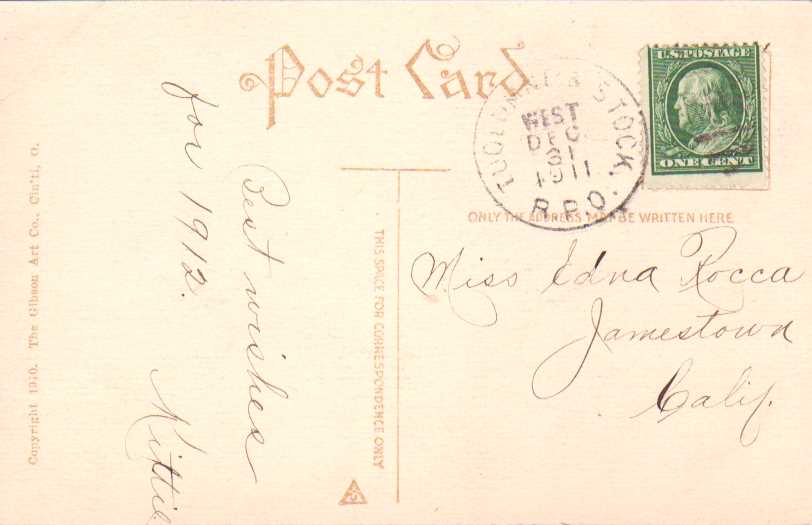 Post Card
U.S. POSTAGE
ONE CENT
TUOLUMNE & STOCK.
WEST
DEC
31
1911
R.P.O.
ONLY THE ADDRESS MAY BE WRITTEN HERE
Miss Edna Rocca
Jamestown
Calif.
THIS SPACE FOR CORRESPONDENCE ONLY
Best wishes
for 1912.
Kittie
Copyright 1910. The Gibson Art Co., Cin'ti, O.